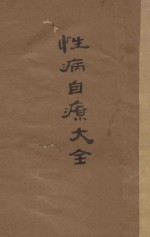 性病自療大全